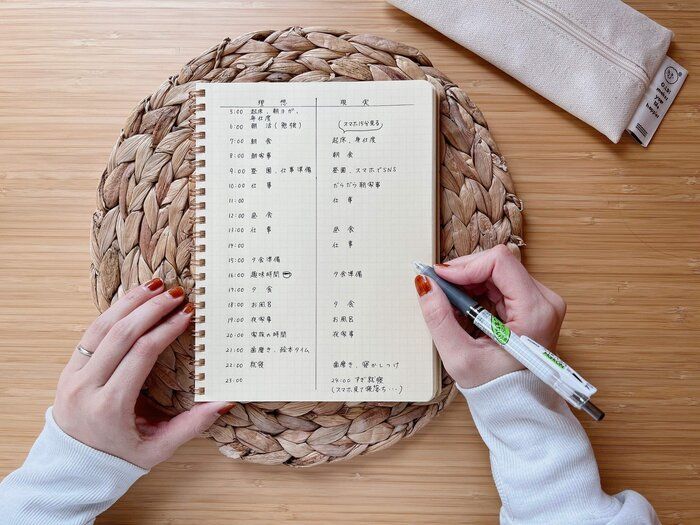 理想 現実
5:00 起床、朝ヨガ、
身仕度
6:00 朝活(勉強) (スマホ15分見る)
7:00 朝食 起床、身仕度
8:00 朝家事 朝食
9:00 登園、仕事準備 登園、スマホでSNS
10:00 仕事 だらだら朝家事
11:00 仕事
12:00 昼食 昼食
13:00 仕事 仕事
14:00
15:00 夕食準備
16:00 趣味時間 夕食準備
17:00 夕食
18:00 お風呂 夕食
19:00 夜家事 お風呂
20:00 家族の時間 夜家事
21:00 歯磨き、絵本タイム
22:00 就寝 歯磨き、寝かしつけ
23:00 24:00すぎ就寝
(スマホ見て寝落ち…)